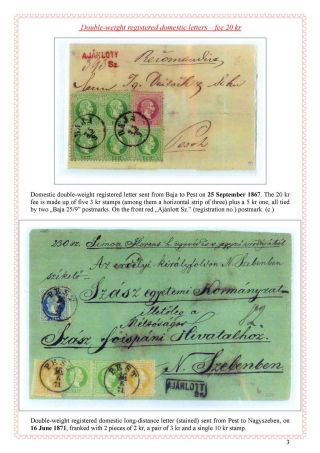 Double-weight registered domestic letters – fee 20 kr
AJÁNLOTT
Sz.
Recomandirt
BAJA
BAJA
Pesth
Domestic double-weight registered letter sent from Baja to Pest on 25 September 1867. The 20 kr
fee is made up of five 3 kr stamps (among them a horizontal strip of three) plus a 5 kr one, all tied
by two „Baja 25/9” postmarks. On the front red „Ajánlott Sz.” (registration no.) postmark. (c.)
230 sz.
Az erdélyi királyföldön N. Szebenben
székelő
Szász egyetemi Kormányzat-
PEST
Méltóságos
Szász főispáni Hivatalhoz
PEST
PEST
N. Szebenben.
AJÁNLOTT
Double-weight registered domestic long-distance letter (stained) sent from Pest to Nagyszeben, on
16 June 1871, franked with 2 pieces of 2 kr, a pair of 3 kr and a single 10 kr stamp.
3